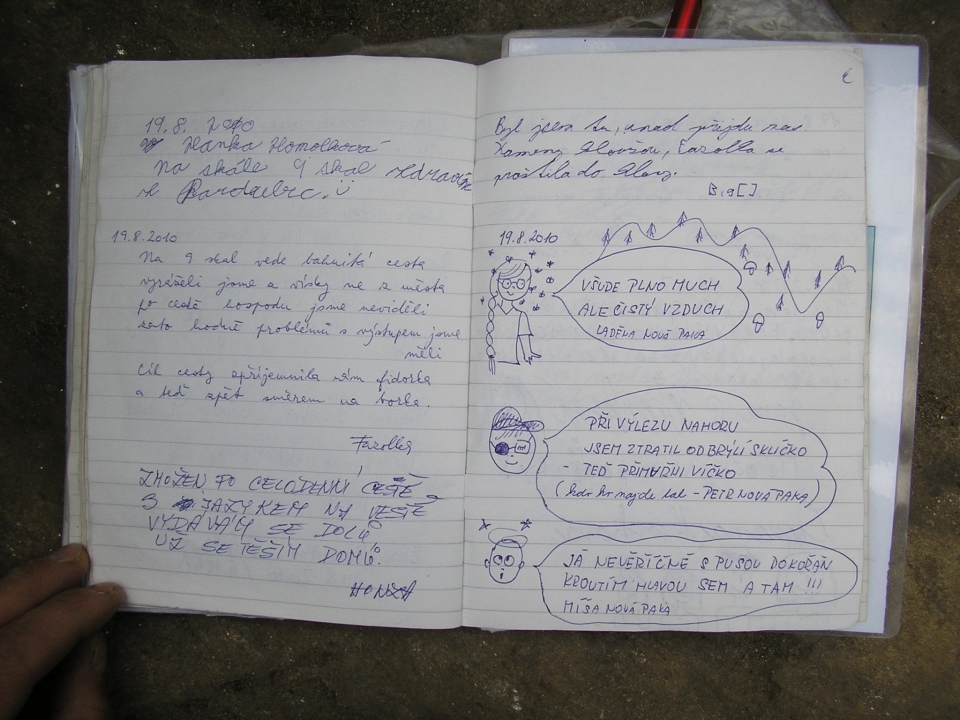 19.8. 2010
Hanka Homolková
Na skále 9 skal zdraví
z Pardubic.
19.8.2010
Na 9 skal vede bahnitá cesta
vyráželi jsme z vísky ne z města
po cestě hospodu jsme neviděli
zato hodně problémů s výstupem jsme
měli
Cíl cesty zpříjemnila nám fidorka
a teď zpět směrem na
Fazolky
ZMOŽEN PO CELODENNÍ CESTĚ
S JAZYKEM NA VESTĚ
VYDÁVÁM SE DOLŮ
UŽ SE TĚŠÍM DOMŮ.
HONZA
Byl jsem tu, snad přijdu zas
19.8.2010
VŠUDE PLNO MUCH
ALE ČISTÝ VZDUCH
LADĚNA NOVÁ PAKA
PŘI VÝLEZU NAHORU
JSEM ZTRATIL OD BRÝLÍ SKLÍČKO
- TEĎ PŘIMHUŘUJI VÍČKO
(kdo ho najde tak - PETR NOVÁ PAKA)
JÁ NEVĚŘÍCNĚ S PUSOU DOKOŘÁN
KROUTÍM HLAVOU SEM A TAM !!!
MÍŠA NOVÁ PAKA